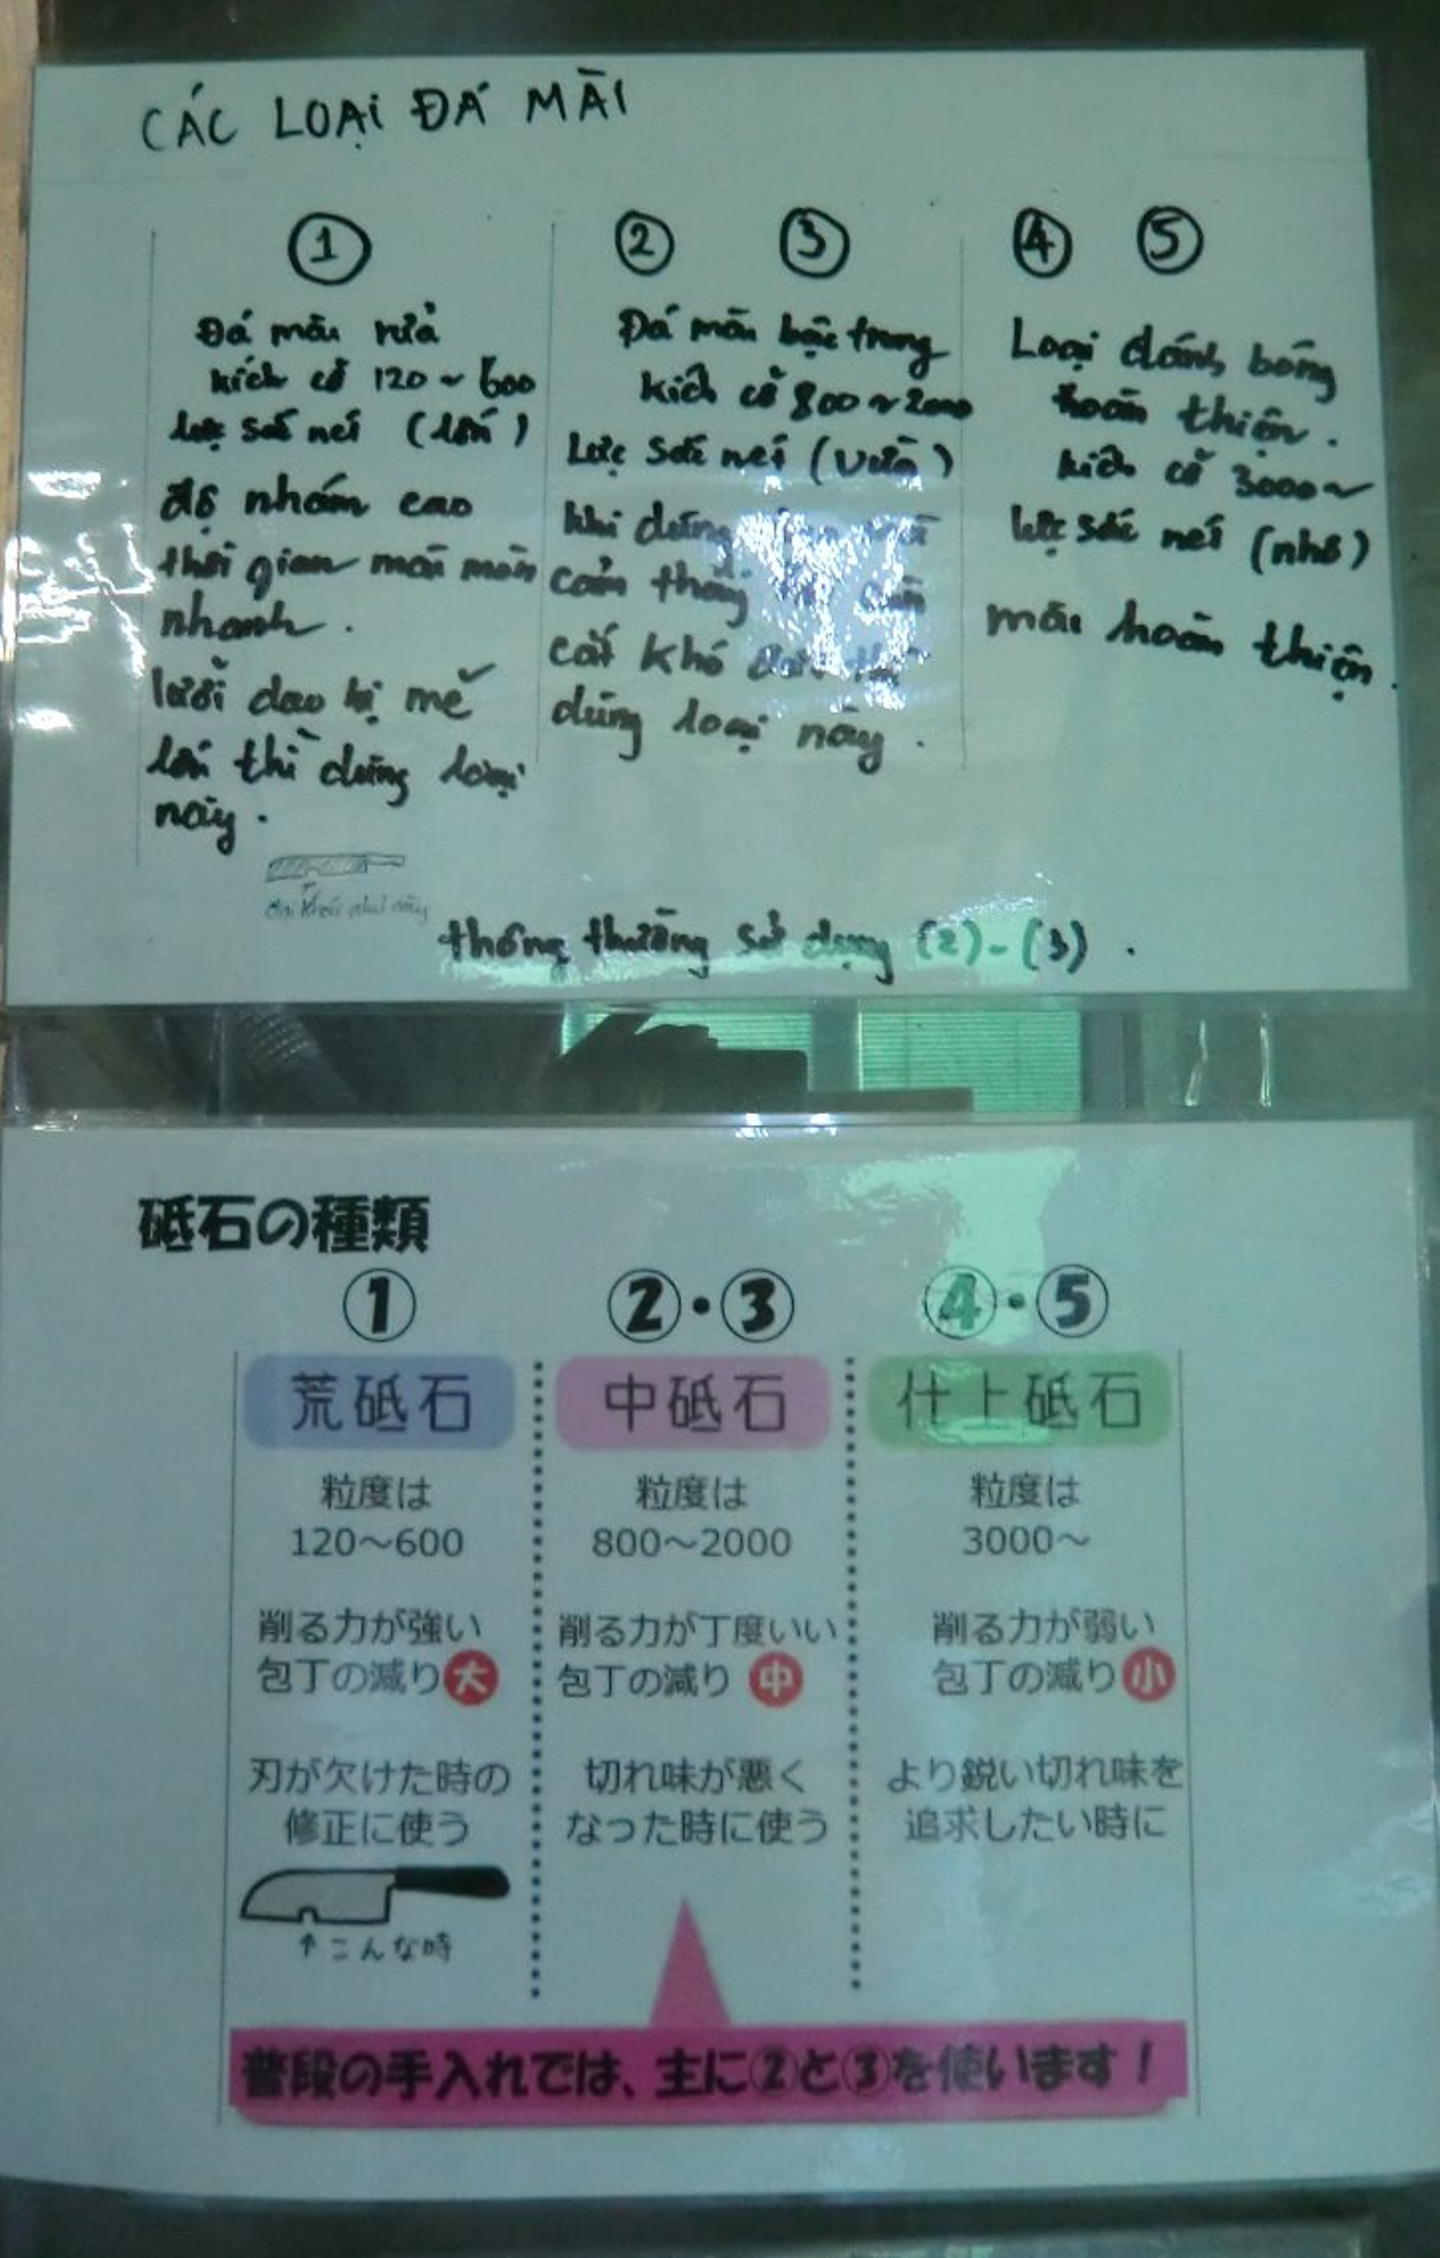 CÁC LOẠI ĐÁ MÀI
①
Đá mài
kích cỡ 120 ~ 600
lực sắc nét (lớn)
độ nhám cao
thời gian mài mòn
nhanh.
lưỡi dao bị mẻ
lớn thì dùng loại
này.
② ③
Đá mài bậc trung
kích cỡ 800 ~ 2000
Lực sắc nét (vừa)
khi dùng
cảm thấy
cắt khó
dùng loại này.
④ ⑤
Loại đánh bóng
hoàn thiện.
kích cỡ 3000 ~
lực sắc nét (nhỏ)
mài hoàn thiện.
thông thường sử dụng (2) - (3).
砥石の種類
①
荒砥石
粒度は
120～600
削る力が強い
包丁の減り大
刃が欠けた時の
修正に使う
↑こんな時
②・③
中砥石
粒度は
800～2000
削る力が丁度いい
包丁の減り 中
切れ味が悪く
なった時に使う
④・⑤
仕上砥石
粒度は
3000～
削る力が弱い
包丁の減り小
より鋭い切れ味を
追求したい時に
普段の手入れでは、主に②と③を使います！